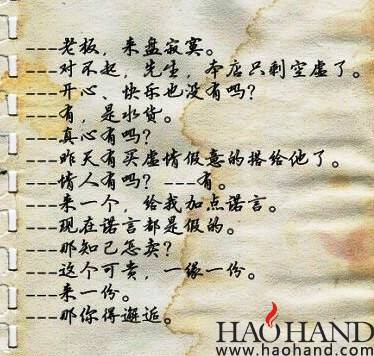 ---老板，来盘寂寞。
---对不起，先生，本店只剩空虚了。
---开心、快乐也没有吗？
---有，是水货。
---真心有吗？
---昨天有买虚情假意的搭给他了。
---情人有吗？---有。
---来一个，给我加点诺言。
---现在诺言都是假的。
---那知己怎卖？
---这个可贵，一缘一份。
---来一份。
---那你得邂逅。
HAOHAND
www.haohand.com